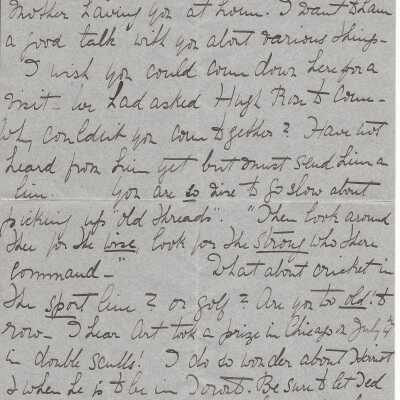 Mother having you at home. I want to have
a good talk with you about various things -
I wish you could come down here for a
visit - we had asked Hugh Rose to come -
Why couldn't you come together? Have not
heard from him yet but must send him a
line. You are so wise to go slow about
picking up "old threads". "Then look around
thee for the wise look for the strong who there
command -" What about cricket in
the sport line? or golf? Are you to old! to
row - I hear Art took a prize in Chicago July 4th
in double sculls! I do so wonder about
& when he is to be in Toronto. Be sure to let Ted